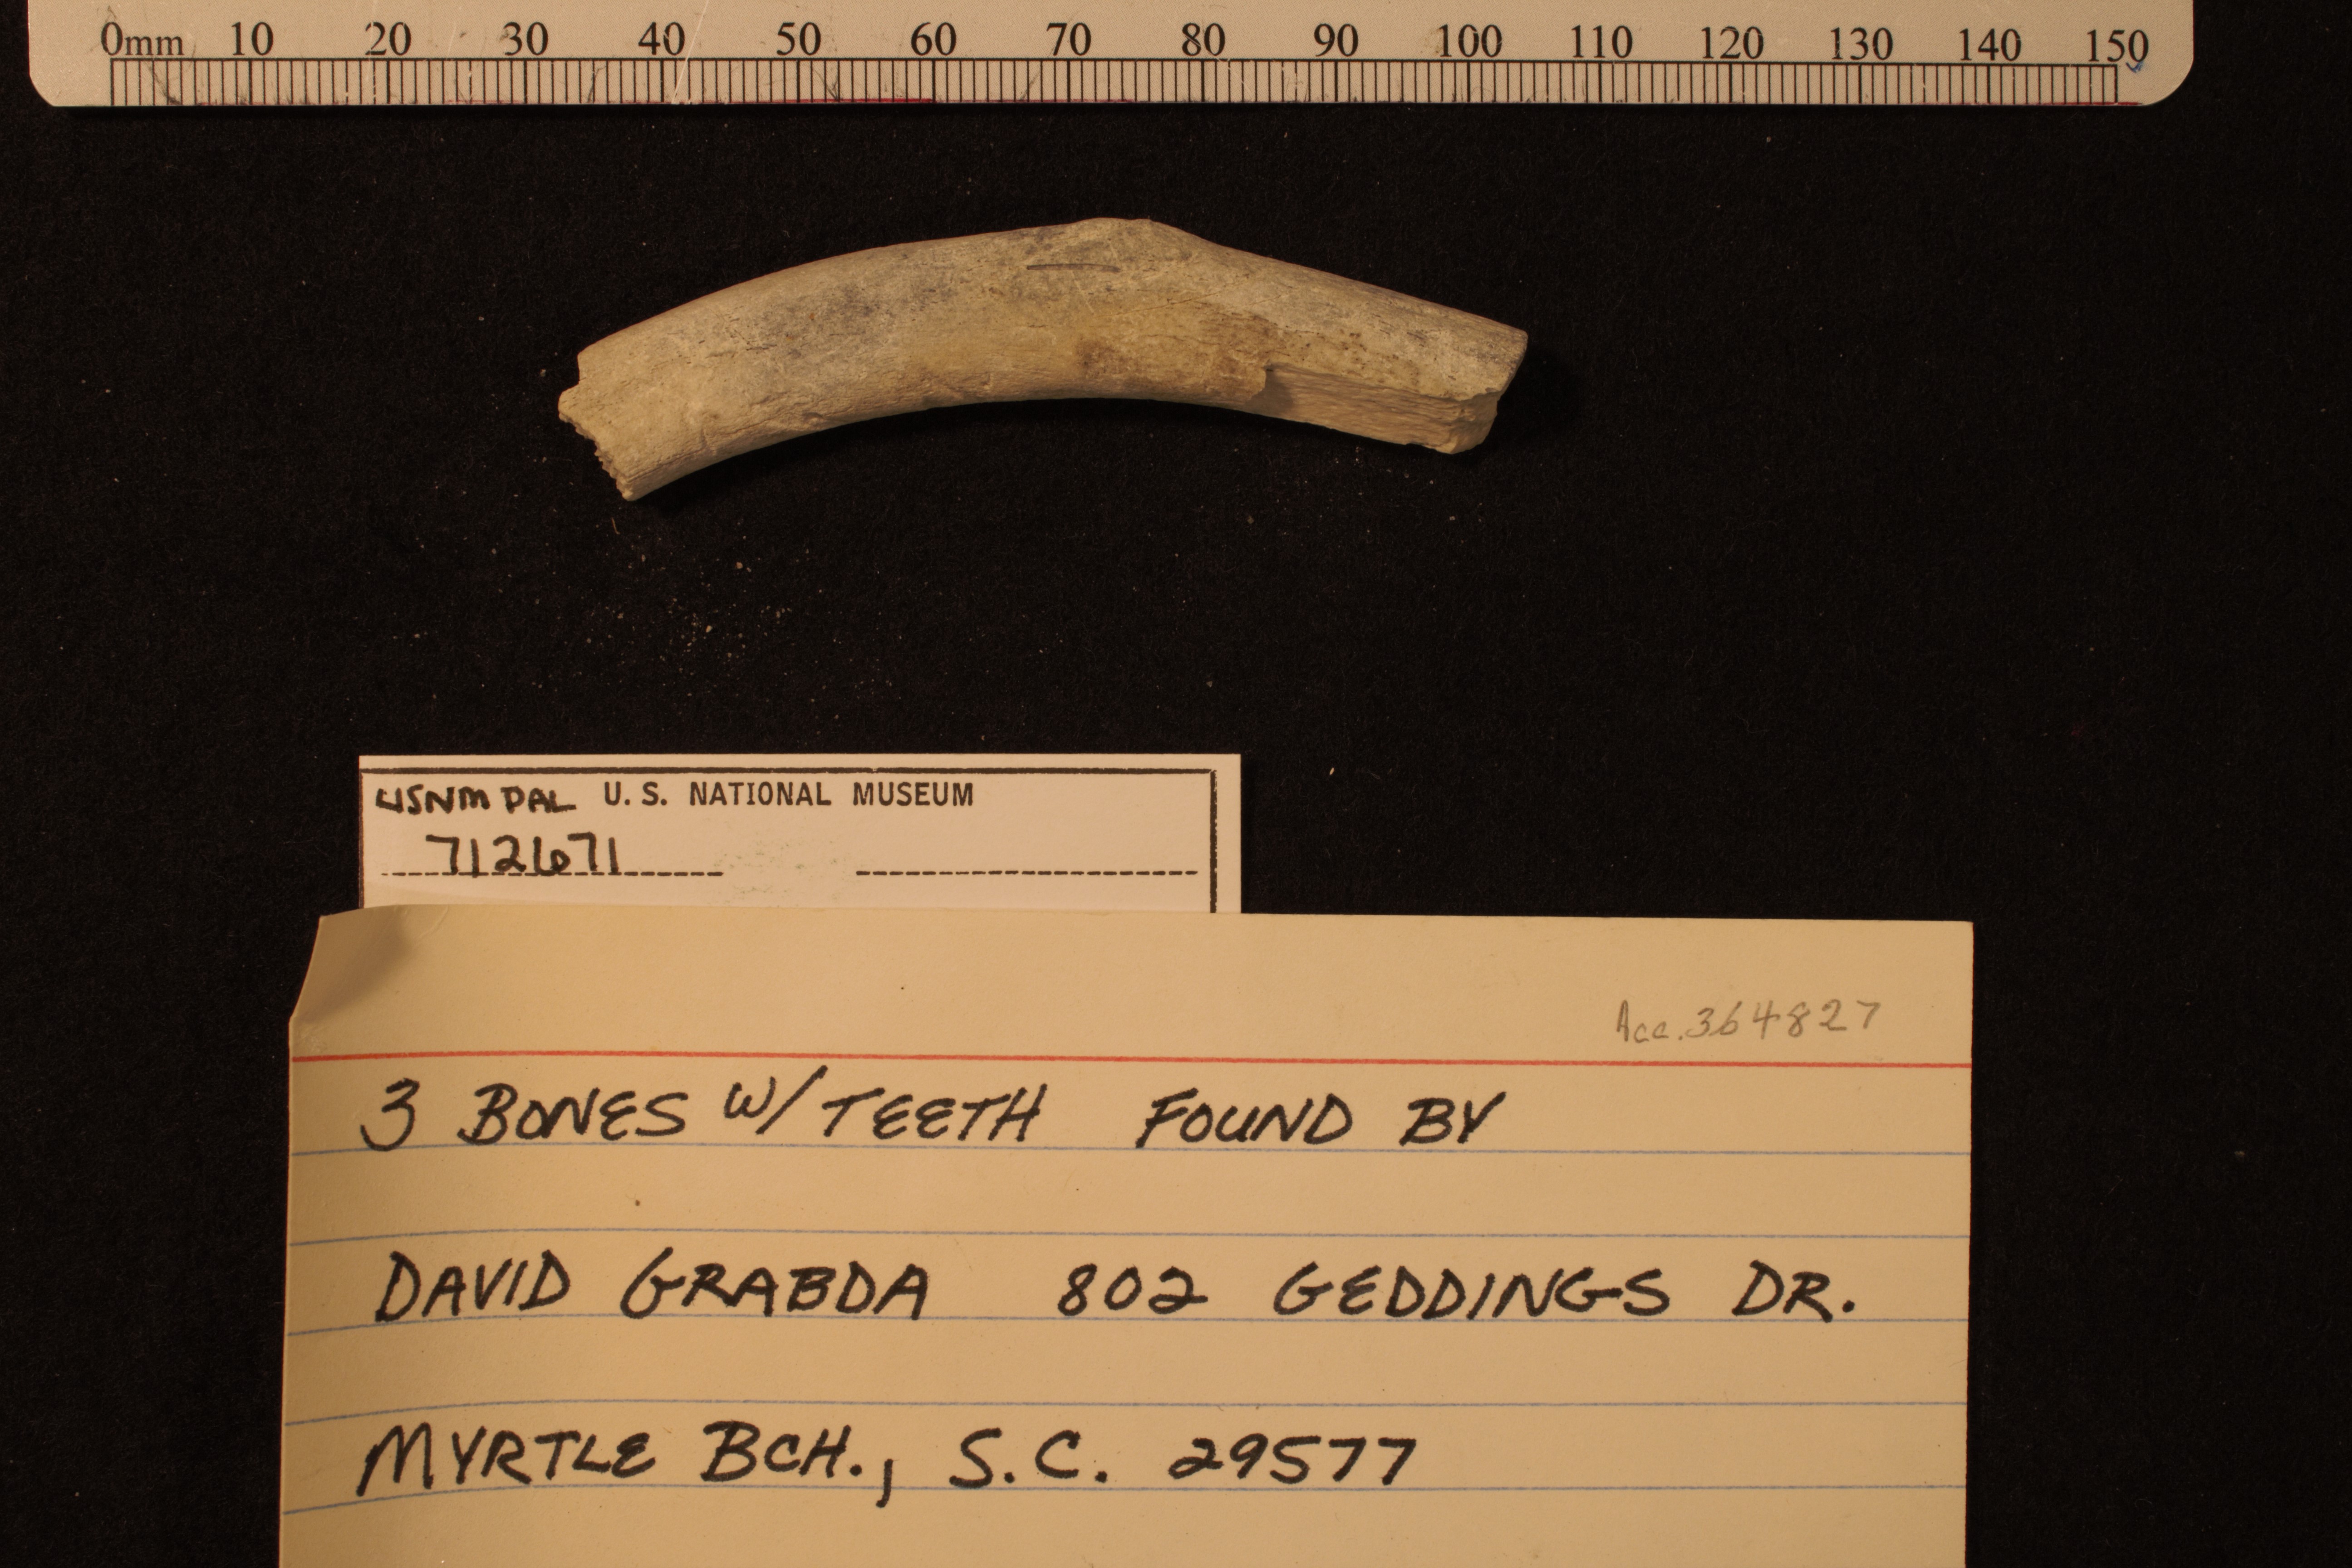 0mm 10 20 30 40 50 60 70 80 90 100 110 120 130 140 150
USNM PAL U. S. NATIONAL MUSEUM
712671
Acc. 364827
3 BONES W/ TEETH FOUND BY
DAVID GRABDA 802 GEDDINGS DR.
MYRTLE BCH., S.C. 29577